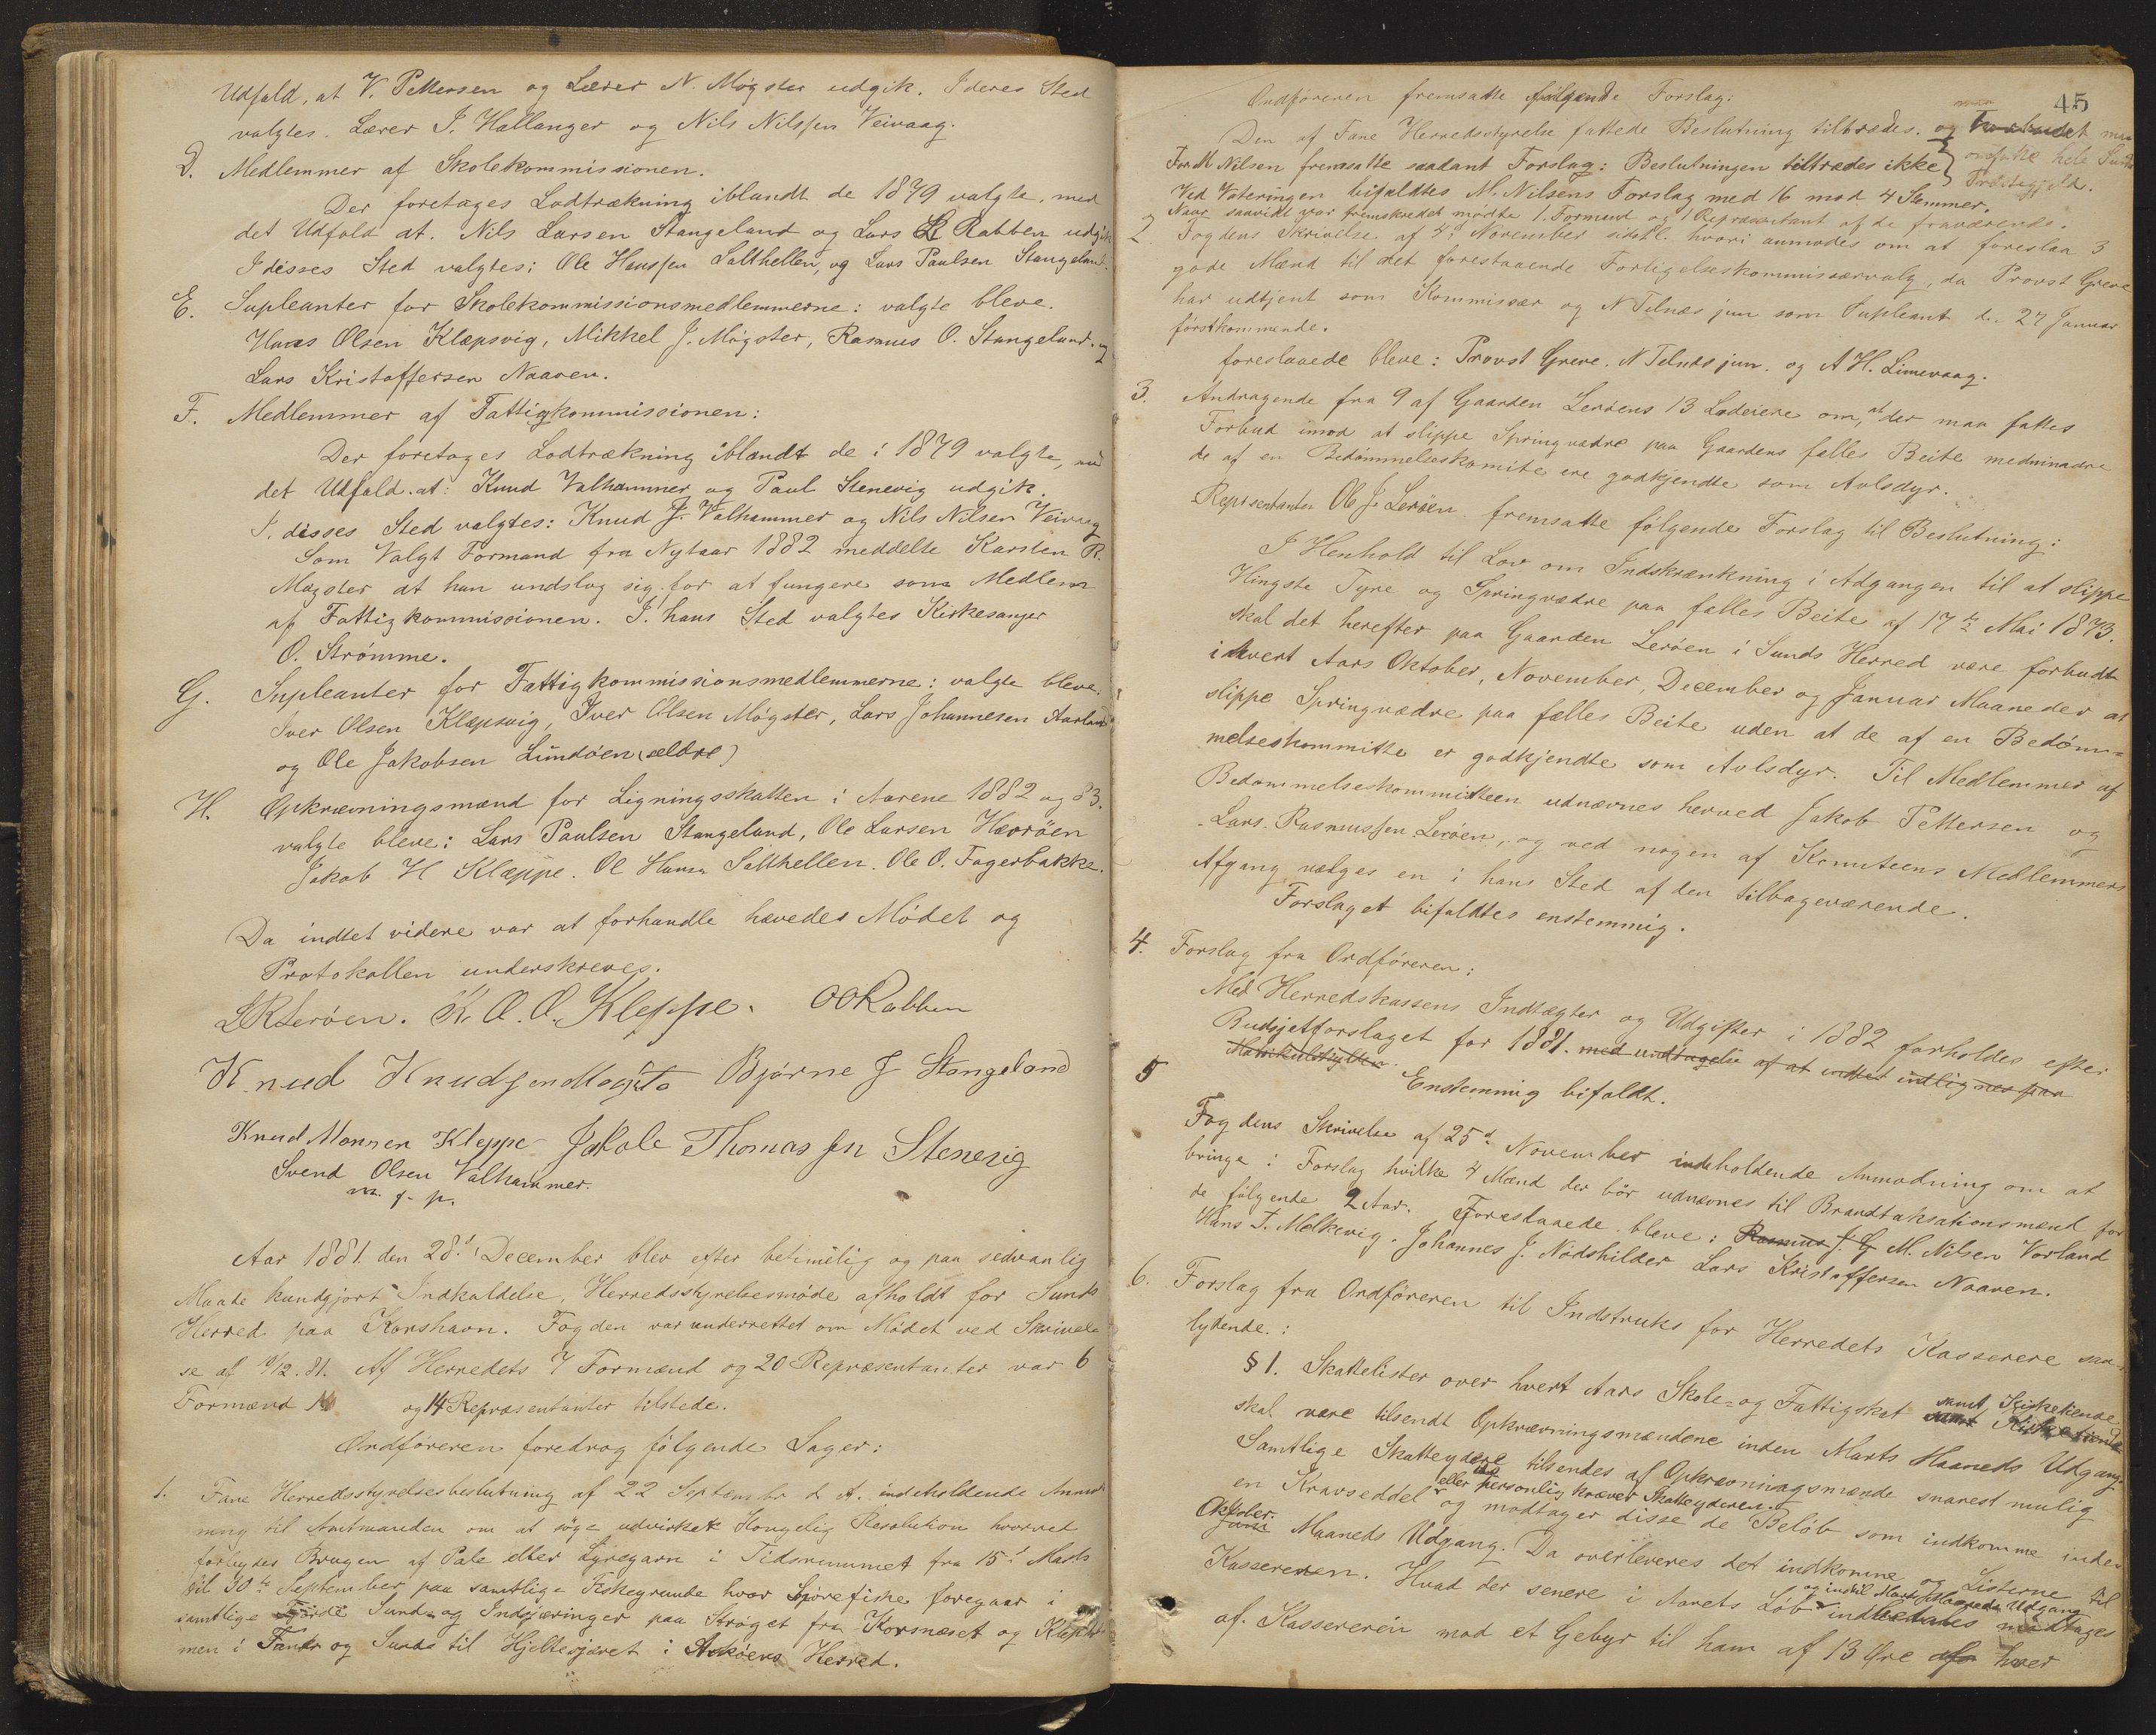 Udfald, at V. Pettersen og Lærer N. Møgster udgik. I deres Sted
valgtes. Lærer J. Hallanger og Nils Nilssen Veivaag.
D. Medlemmer af Skolekommissionen.
Der foretages Lodtrækning iblandt de 1879 valgte, med
det Udfald at. Nils Larsen Stangeland og Lars Rabben udgik
I disses Sted valgtes: Ole Hanssen Salthellen, og Lars Paulsen Stangeland.
E. Supleanter for Skolekommissionsmedlemmerne: valgte bleve.
Hans Olsen Klepsvig, Mikkel J. Møgster, Rasmus O. Stangeland. og
Lars Kristoffersen Naaven.
F. Medlemmer af Fattigkommissionen:
Der foretages Lodtrækning iblandt de i 1879 valgte, med
det Udfald. at: Knud Valhammer og Paul Stenevig udgik.
I. disses Sted valgtes: Knud J. Valhammer og Nils Nilsen Veivaag
Som Valgt Formand fra Nytaar 1882 meddelte Karsten R.
Møgster at han undslog sig for at fungere som Medlem
af Fattigkommissionen. I. hans Sted valgtes Kirkesanger
O. Strømme.
G. Supleanter for Fattigkommissionsmedlemmerne: valgte bleve:
Iver Olsen Klepsvig, Iver Olsen Møgster, Lars Johannesen Aarland
og Ole Jakobsen Lundöen (ældre)
H. Opkrævningsmænd for Ligningsskatten i Aarene 1882 og 83.
valgte bleve: Lars Paulsen Stangeland, Ole Larsen Hærröen
Jakob H Kleppe. Ol Hansn Salthellen. Ole O. Fagerbakke.
Da indtet videre var at forhandle hævedes Mödet og
Protokollen underskreves.
LRLeröen. K. O. O. Kleppe. OORabben
Knud Knudsen Bjørne J Stangeland
Knud Monsen Kleppe Jakob Thomassen Stenevig
Svend Olsen Valhammer.
m. f. p.
Aar 1881 den 28d December blev efter betimelig og paa sedvanlig
Maade kundgjort Indkaldelse, Herredsstyrelsesmøde afholdt for Sunds
Herred paa Korshavn. Fogden var underrettet om Mødet ved Skrivel-
se af 10/12.81. Af Herredets 7 Formænd og 20 Repræsentanter var 6
Formænd og 14 Repræsentanter tilstede.
Ordføreren foredrog følgende Sager:
1. Fane Herredsstyrelsesbeslutning af 22 Septembr d. A. indeholdende Anmod-
ning til Amtmanden om at søge udvirket Kongelig Resolution hvorved
forbydes Brugen af Pale eller Lyregarn i Tidsrummet fra 15d Marts
til 30te September paa samtlige Fiskegrunde hvor Sjørefiske foregaar i
samtlige Fjorde Sunde og Indsæringer paa Strøget fra Korsnæset og Klep
men i Fanø og Sunds til Hjeltesjøret i Askøens Herred.
45
Ordføreren fremsatte følgende Forslag:
Den af Fane Herredsstyrelse fattede Beslutning tiltrædes. og Forbudet maa
omfatte hele Sunds
Præstegjeld.
For M Nilsen fremsatte saadant Forslag: Beslutningen tiltrædes ikke
Ved Voteringen bifaldtes M. Nilsens Forslag med 16 mod 4 Stemmer.
Naar saavidt var fremskredet mødte 1. Formand og 1 Repræsentant af de fraværende.
2. Fogdens Skrivelse af 4d November sidstl. hvori anmodes om at foreslaa 3
gode Mænd til det forestaaende Forligelseskommissærvalg, da Provst Greve
har udtjent som Kommissær og N Telnæs jun som Supleant d. 27 Januar
førstkommende.
foreslaaede bleve: Provst Greve. N Telnæs jun. og A H. Limevaag.
3. Andragende fra 9 af Gaarden Lerøens 13 Lodeiere om, at der maa fattes
Forbud imod at slippe Springvædre paa Gaardens fælles Beite medmindre
de af en Bedømmelseskomite ere godkjendte som Avlsdyr.
Repræsentanten Ol J. Lerøen fremsatte følgende Forslag til Beslutning:
I Henhold til Lov om Indskrænkning i Adgangen til at slippe
Hingste Tyre og Springvædre paa fælles Beite af 17de Mai 1873.
skal det herefter paa Gaarden Lerøen i Sunds Herred være forbudt
i hvert Aars Oktober, November, December og Januar Maaneder at
slippe Springvædre paa fælles Beite uden at de af en Bedøm=
melseskommitte er godkjendte som Avlsdyr. Til Medlemmer af
Bedømmelseskommitteen udnævnes herved Jakob Pettersen og
Lars Rasmussen Lerøen, og ved nogen af Komiteens Medlemmers
Afgang vælges en i hans Sted af den tilbageværende.
Forslaget bifaldtes enstemmig.
4. Forslag fra Ordføreren:
Med Herredskassens Indtægter og Udgifter i 1882 forholdes efter
Budsjetforslaget for 1881. med undtagelse af at indtet udlignes paa
Matrikulskylden.
Enstemmig bifaldt.
5 Fogdens Skrivelse af 25d November indeholdende Anmodning om at
bringe i Forslag hvilke 4 Mænd der bör udnævnes til Brandtaksationsmænd for
de følgende 2 Aar. Foreslaaede bleve: Rasmus J. G M. Nilsen Vorland
Hans T. Melkevig. Johannes J. Nodshilder Lars Kristoffersen Naaven.
6. Forslag fra Ordføreren til Indstruks for Herredets Kasserere saa-
lydende.:
§ 1. Skattelister over hvert Aars Skole- og Fattigskat samt Kirketiende
skal være tilsendt Opkrævningsmændene inden Marts Maaneds Udgang.
Samtlige Skatteydere tilsendes af Opkrævningsmænde snarest mulig
en Kravseddel eller personlig kræver Skatteyderen. og modtager disse de Beløb som indkomme inden
Oktober Juni Maaneds Udgang. Da overleveres det indkomne og Listerne til
Kassereren. Hvad der senere i Aarets Løb og indtil Marts Maaneds Udgang indbetales modtages
af. Kassereren mod et Gebyr til ham af 13 Øre af hver